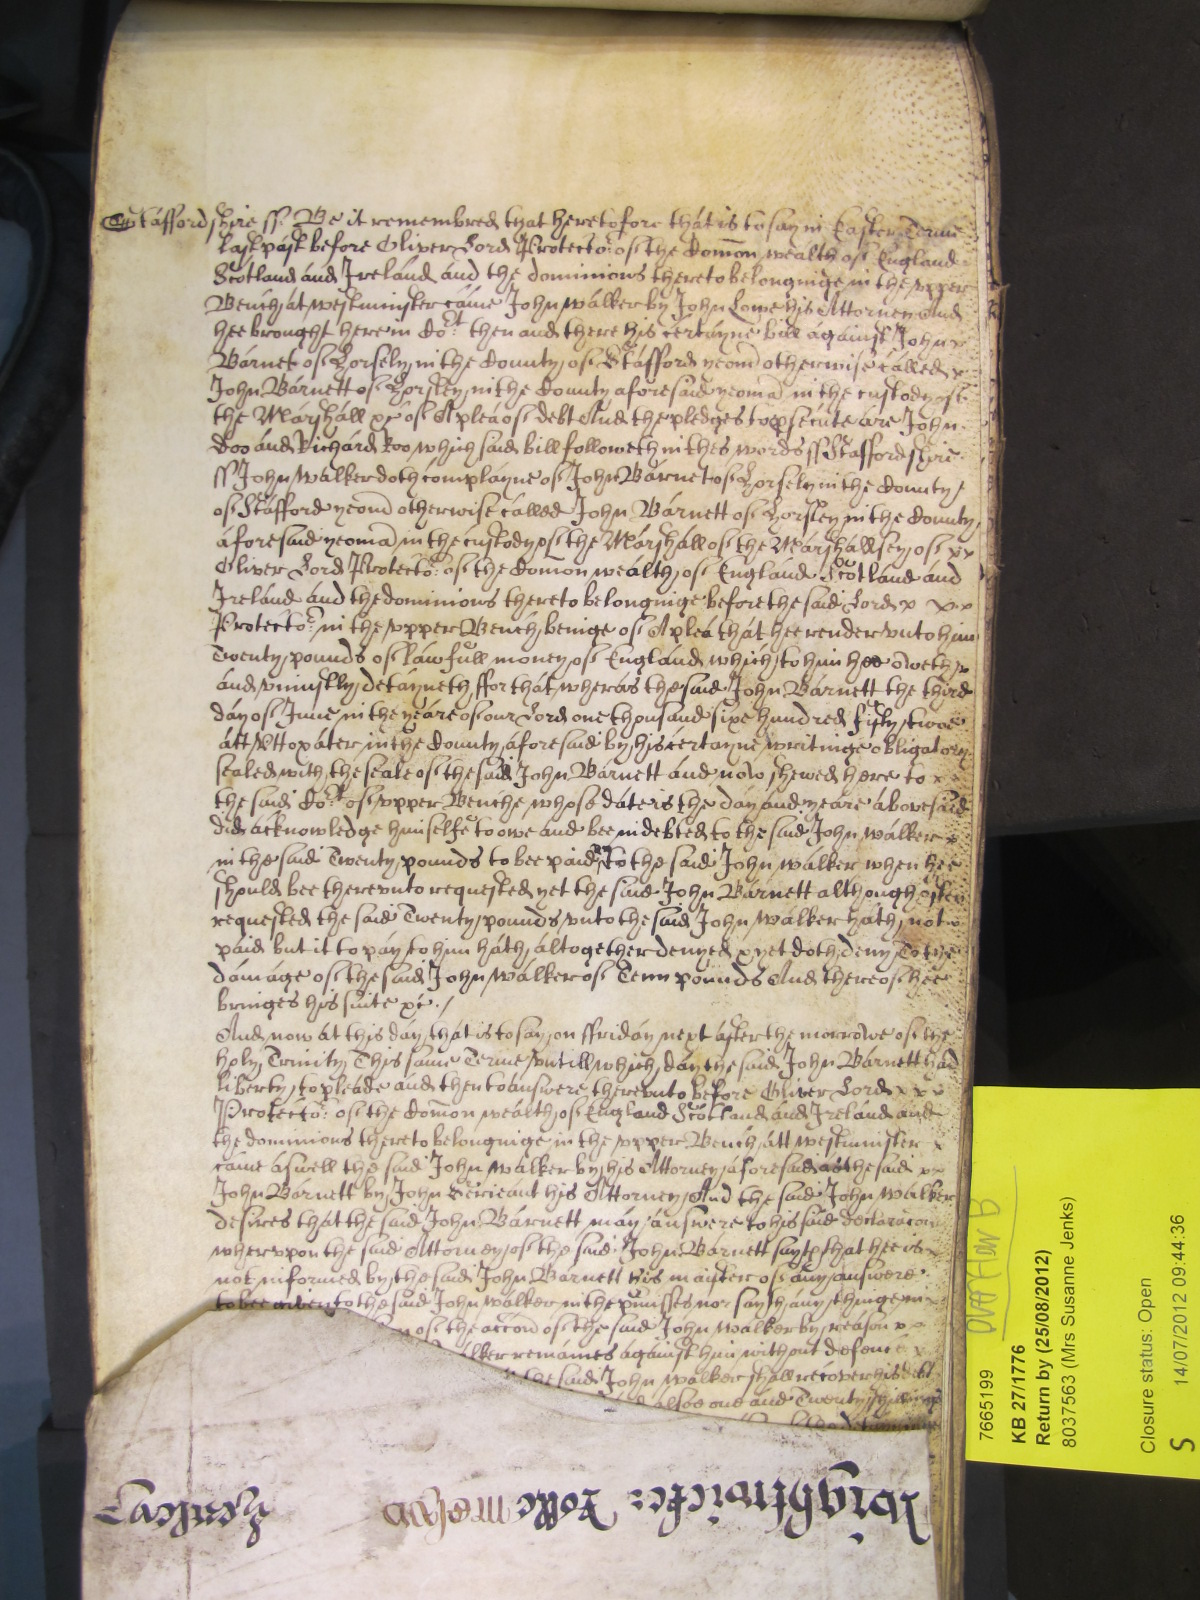 Staffordshire ss Be it remembred that heretofore that is to say in Easter Terme
last past before Oliver Lord Protector of the Comon wealth of England
Scotland and Ireland and the dominions thereto belonginge in the upper
Bench at westminster came John Walker by John Lowe his Attorney And
hee brought here in Cort then and there his certayne bill against John
Barnet of in the County of Stafford yeom otherwise called
John Barnett of in the County aforesaid yeoman in the custody of
the Marshall xc of A plea of debt And the pledges to psecute are John
Doo and Richard Roo which said bill followeth in thes words ss Staffordshire
ss John Walker doth complayne of John Barnet of in the County
of Stafford yeom otherwise called John Barnett of in the County
aforesaid yeoman in the custody of the Marshall of the Marshallsey of
Oliver Lord Protector of the Comon wealth of England Scotland and
Ireland and the dominions thereto belonginge before the said Lord
Protector in the upper Bench beinge of A plea that hee render unto him
Twenty pounds of lawfull money of England which to him hee oweth
and uniustly detayneth ffor that wheras the said John Barnett the third
day of June in the yeare of our Lord one thousand sixe hundred fifty twoe
att Uttoxater in the County aforesaid by his certayne writinge obligatory
sealed with the seale of the said John Barnett and now shewed here to
the said Cort of upper Benche whose date is the day and yeare abovesaid
did acknowledge himselfe to owe and bee indebted to the said John Walker
in the said Twenty pounds to bee paid to the said John Walker when hee
should bee thereunto requested yet the said John Barnett although often
requested the said Twenty pounds unto the said John Walker hath not
paid but it to pay to him hath altogether denyed yet doth deny To the
damage of the said John Walker of Tenn pounds And thereof hee
bringes his suite xc
And now at this day that is to say on ffriday next after the morrowe of the
holy Trinity This same Terme untill which day the said John Barnett had
liberty to pleade and then to answere thereunto before Oliver Lord
Protector of the Comon wealth of England Scotland and Ireland and
the dominions thereto belonginge in the upper Bench att westminster
came aswell the said John Walker by his Attorney aforesaid as the said
John Barnett by John Serieant his Attorney And the said John Walker
desires that the said John Barnett may answere to his said declaracon
wherupon the said Attorney of the said John Barnett sayth that hee is
not informed by the said John Barnett his maister of any answere
to bee given to the said John Walker in the pmisses nor sayth any thinge in
of the accon of the said John Walker by reason
remaines against him without defence
the said John Walker shall recover his debt
alsoe one and Twenty shillings
Wightwicke:
7665199
KB 27/1776
Return by (25/08/2012)
8037563 (Mrs Susanne Jenks)
Closure status: Open
S 14/07/2012 09:44:36